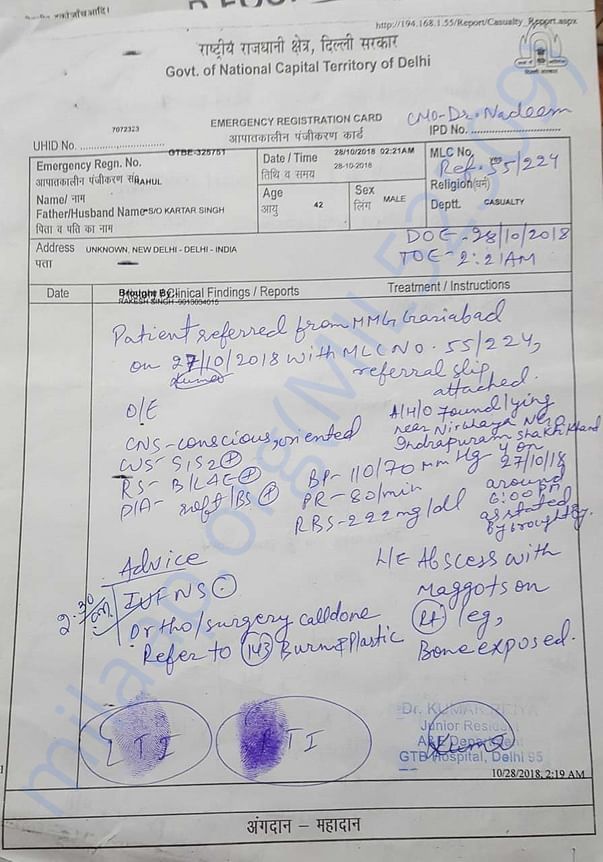 http://194.168.1.55/Report/Casualty_Report.aspx
राष्ट्रीय राजधानी क्षेत्र, दिल्ली सरकार
Govt. of National Capital Territory of Delhi
CMO-Dr. Nadeem
EMERGENCY REGISTRATION CARD
आपातकालीन पंजीकरण कार्ड
UHID No. 7072323
IPD No.
Emergency Regn. No. GTBE-325751
आपातकालीन पंजीकरण सं
Name/ नाम RAHUL
Father/Husband Name S/O KARTAR SINGH
पिता व पति का नाम
Date / Time 28/10/2018 02:21AM
तिथि व समय 28-10-2018
Age 42
आयु
Sex MALE
लिंग
MLC No.
Ref. 55/224
Religion(धर्म)
Deptt. CASUALTY
Address UNKNOWN, NEW DELHI - DELHI - INDIA
पता
DOE-28/10/2018
TOE-2:21AM
Date
Brought By:
Clinical Findings / Reports
Treatment / Instructions
RAKESH SINGH
Patient referred from MMG, Gaziabad
on 27/10/2018 with MLC NO. 55/224,
referral slip
attached.
O/E
CNS-conscious, oriented
CVS-S1S2+
RS-B/LAE+
P/A- soft/BS+
A/H/O found lying
near
Indrapuram Shakti Khand
4 on
27/10/18
around
6:00 PM
as stated
by brought by.
BP-110/70 mm Hg
PR-80/min
RBS-222 mg/dl
Advice
2:30
am
IVF NS
Ortho/surgery call done
Refer to 143 Burn & Plastic
L/E Abscess with
Maggots on
Rt leg,
Bone exposed.
LTI
RTI
Dr. KUMARI
Junior Resident
A&E Department
GTB Hospital, Delhi 95
10/28/2018, 2:19 AM
अंगदान – महादान
milaap.org